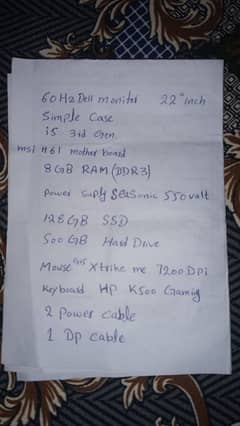 60 Hz Dell monitor 22" inch
Simple Case
i5 3rd Gen
msi H61 mother board
8 GB RAM (DDR3)
Power Suply SeaSonic 550 valt
128 GB SSD
500 GB Hard Drive
Mouse Xtrike me 7200 DPi
Keyboard HP K500 Gaming
2 Power cable
1 Dp cable